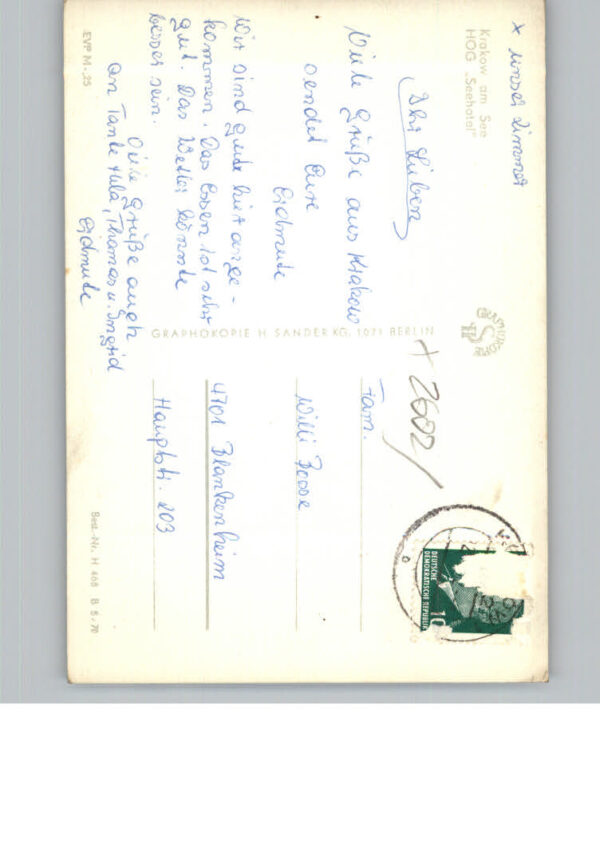 x unser Zimmer
Krakow am See
HOG „Seehotel"
Ihr Lieben
Viele Grüße aus Krakow
sendet Eure
Eidmute
Wir sind gute hir ange-
kommen. Das Essen ist sehr
gut. Das Wetter könnte
besser sein.
Viele Grüße auch
an Tante Hula, Thomas u. Ingrid
Eidmute
EVP M -,25
GRAPHOKOPIE H. SANDER KG, 1071 BERLIN
x 2602/
Fam.
Willi Bosse
4701 Blankenheim
Hauptstr. 203
DEUTSCHE
DEMOKRATISCHE REPUBLIK
10
Best.-Nr. H 468 B 5/70